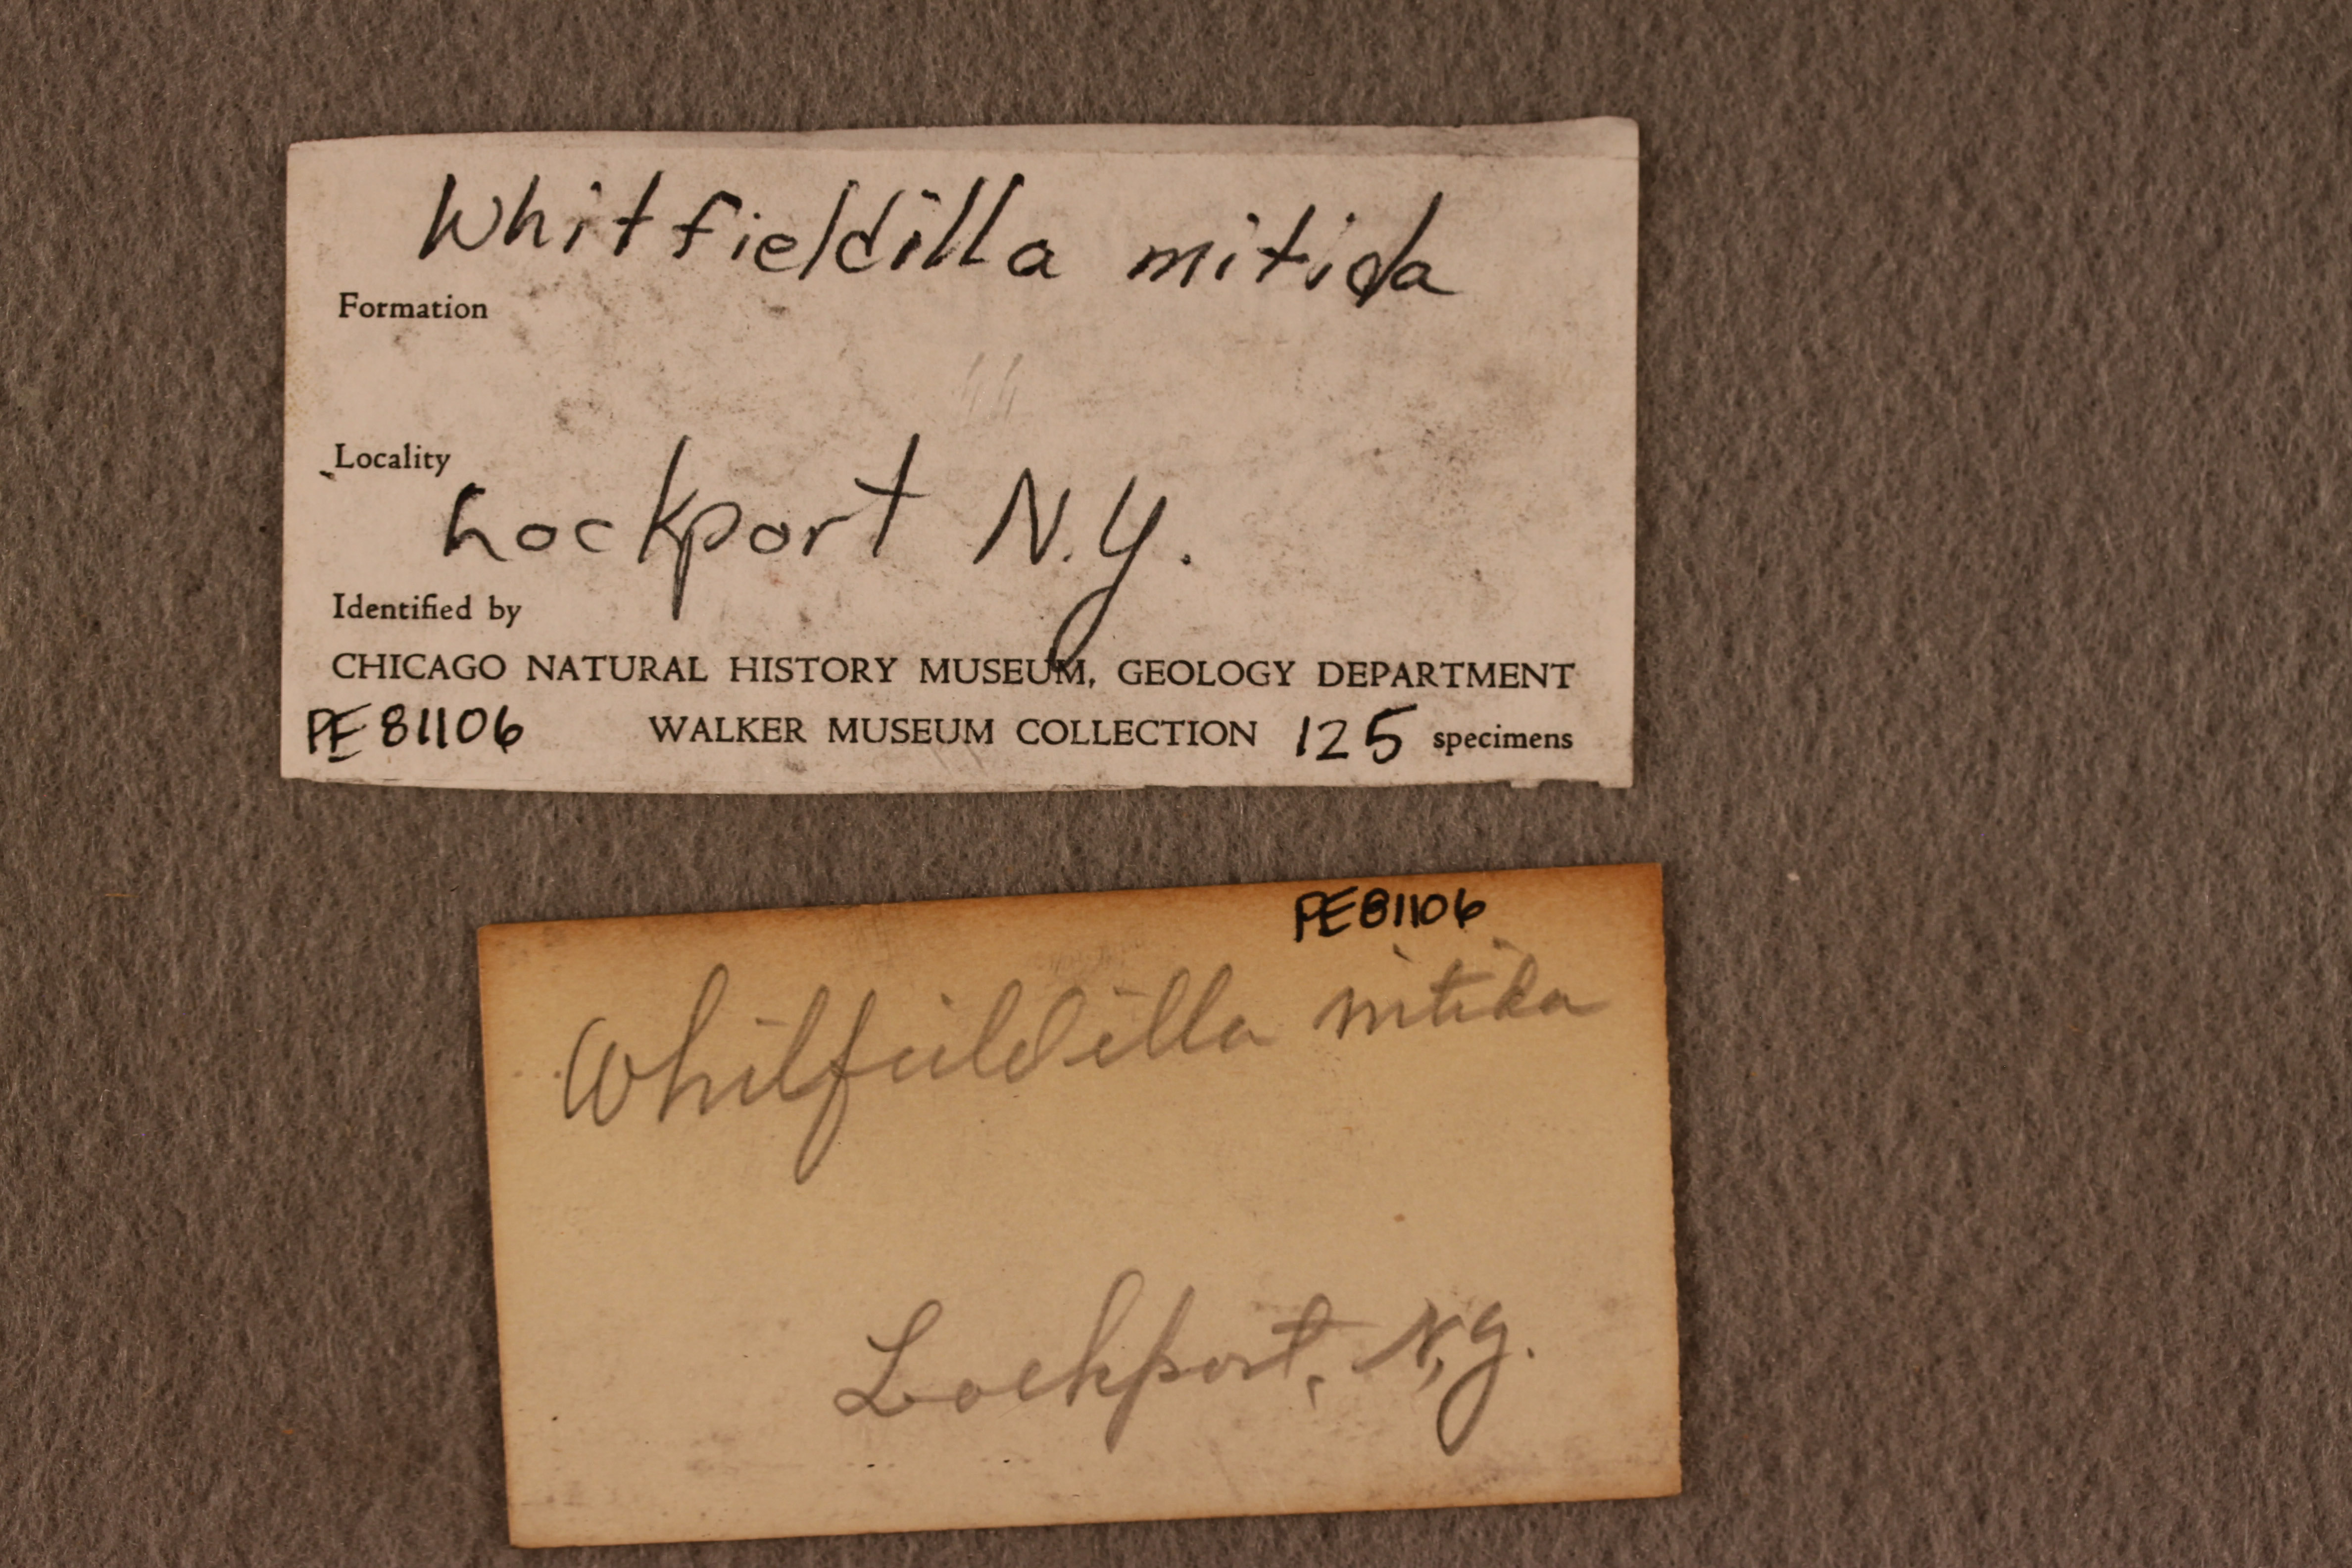 Whitfieldilla mitida
Formation
Locality
Lockport N.Y.
Identified by
CHICAGO NATURAL HISTORY MUSEUM, GEOLOGY DEPARTMENT
PE 81106 WALKER MUSEUM COLLECTION 125 specimens
PE81106
Whitfieldilla nitida
Lockport, N.Y.